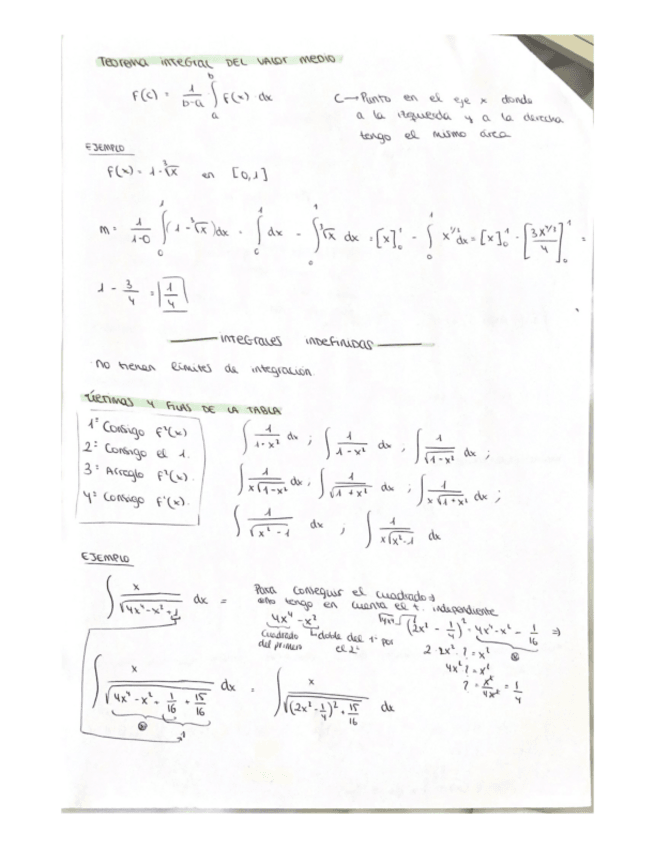 TEOREMA INTEGRAL DEL VALOR MEDIO
f(c) = 1/(b-a) ∫_a^b f(x) · dx
C → Punto en el eje x donde
a la izquierda y a la derecha
tengo el mismo área
EJEMPLO
f(x) = 1 - ∛x en [0,1]
m = 1/(1-0) ∫_0^1 (1 - ∛x) dx = ∫_0^1 dx - ∫_0^1 ∛x dx = [x]_0^1 - ∫_0^1 x^(1/3) dx = [x]_0^1 - [3x^(4/3)/4]_0^1 =
1 - 3/4 = 1/4
INTEGRALES INDEFINIDAS
No tienen límites de integración.
ÚLTIMAS 4 FILAS DE LA TABLA
1º Consigo f²(x)
2º Consigo el 1.
3º Arreglo f²(x).
4º Consigo f'(x).
∫ 1/(1+x²) dx ; ∫ 1/(1-x²) dx ; ∫ 1/√(1-x²) dx ;
∫ 1/(x√(1-x²)) dx ; ∫ 1/√(1+x²) dx ; ∫ 1/(x√(1+x²)) dx ;
∫ 1/√(x²-1) dx ; ∫ 1/(x√(x²-1)) dx
EJEMPLO
∫ x/√(4x⁴-x²+1) dx =
Para conseguir el cuadrado ⇒
no tengo en cuenta el t. independiente
4x⁴ - x²
Cuadrado del primero
doble del 1º por el 2º
√4x⁴ (2x² - 1/4)² = 4x⁴ - x² + 1/16 ⇒
2 · 2x² · ? = x²
4x² ? = x²
? = x²/4x² = 1/4
∫ x/√(4x⁴ - x² + 1/16 + 15/16) dx = ∫ x/√((2x² - 1/4)² + 15/16) dx
1